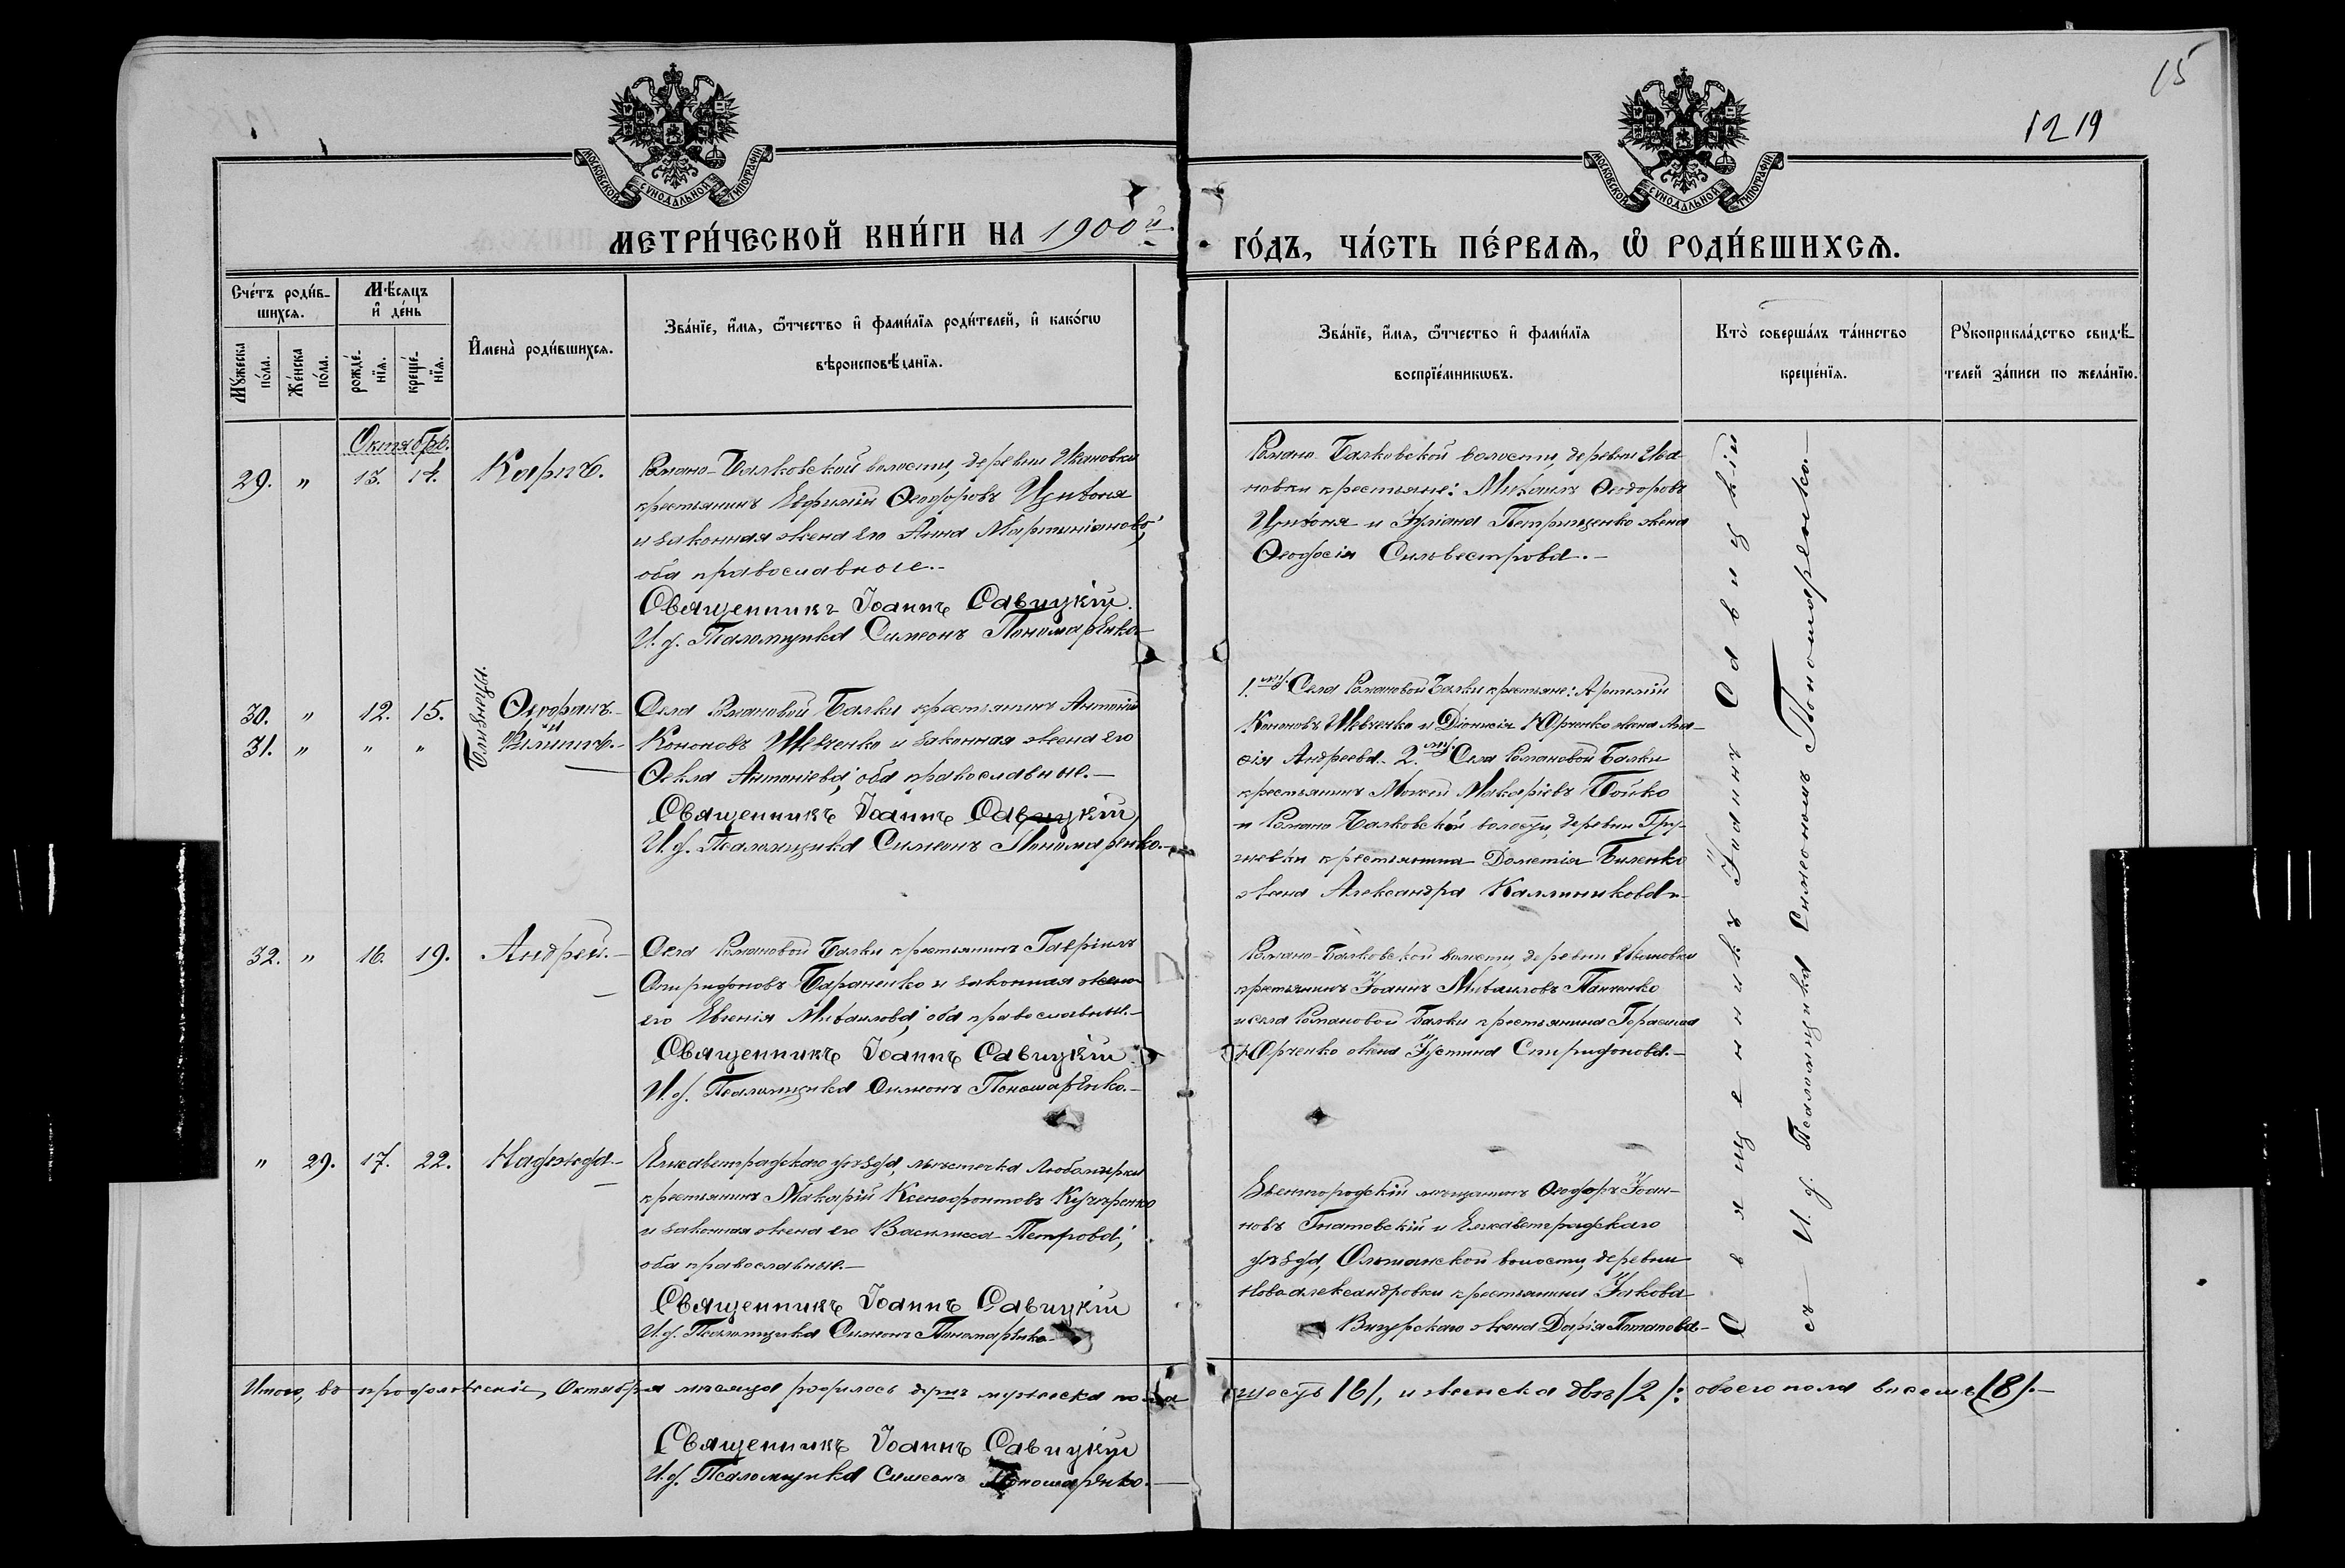 15
1219
МОСКОВСКОЙ СѴНОДАЛЬНОЙ ТИПОГРАФІИ
МОСКОВСКОЙ СѴНОДАЛЬНОЙ ТИПОГРАФІИ
МЕТРИ́ЧЕСКОЙ КНИ́ГИ НА 1900й
ГО́ДЪ, ЧА́СТЬ ПЕ́РВАѦ, Ѽ РОДИ́ВШИХСѦ.
Сче́тъ роди́в-
шихсѧ.
Мѣ́сѧцъ
и҆ де́нь
Мꙋ́жеска по́ла.
Же́нска по́ла.
рожде́-нїѧ.
креще́-нїѧ.
И҆мена̀ роди́вшихсѧ.
Зва́нїе, и҆́мѧ, ѻ҆́тчество и҆ фами́лїѧ роди́телей, и҆ како́гѡ
вѣроисповѣ́данїѧ.
Зва́нїе, и҆́мѧ, ѻ҆́тчество и҆ фами́лїѧ
воспрїе́мникѡвъ.
Кто̀ соверша́лъ та́инство
креще́нїѧ.
Рꙋкоприкла́дство свидѣ́-
телей за́писи по жела́нїю.
Октябрь.
29. " 13. 14. Карпъ.
Романо-Балковской волости, деревни Ивановки
крестьянинъ Евфимій Ѳеодоровъ Цривоня
и законная жена его Анна Мартиніанова,
оба православные.-
Священникъ Іоаннъ Савицкій.
И. д. Псаломщика Симеонъ Пономаренко
Романо-Балковской волости, деревни Ива-
новки крестьяне: Михаилъ Ѳеодоровъ
и Іуліана Петрищенко жена
Ѳеодосія Силвестрова.-
30. " 12. 15. Ѳеофанъ.-
31. " " " Филиппъ.-
Близнецы.
Села Романовой Балки крестьянинъ Антоній
Кононовъ Шевченко и законная жена его
Ѳекла Антоніева, оба православные.-
Священникъ Іоаннъ Савицкій
И. д. Псаломщика Симеонъ Пономаренко.-
1. Села Романовой Балки крестьяне: Артемій
Кононовъ Шевченко и Діонисія Юрченко жена Ана-
сія Андреева. 2. Села Романовой Балки
крестьянинъ Мокій Макаріевъ Бойко
и Романо-Балковской волости, деревни Гру-
шевки крестьянина Дометія Биленко
жена Александра Каллиникова.
32. " 16. 19. Андрей.-
Села Романовой Балки крестьянинъ Гавріилъ
Спиридоновъ Бараненко и законная жена
его Евгенія Михаилова, оба православные.-
Священникъ Іоаннъ Савицкій
И. д. Псаломщика Симеонъ Пономаренко.-
Романо-Балковской волости, деревни Ивановки
крестьянинъ Іоаннъ Михаиловъ Панченко
и села Романовой Балки крестьянина Герасима
Юрченко жена Іустина Спиридонова.-
" 29. 17. 22. Надежда.-
Елисаветградскаго уѣзда, мѣстечка Любомирки
крестьянинъ Макарій Ксенофонтовъ Кучеренко
и законная жена его Василисса Петрова,
оба православные.-
Священникъ Іоаннъ Савицкій
И. д. Псаломщика Симеонъ Пономаренко
Звенигородскій мѣщанинъ Ѳеодоръ Іоан-
новъ Гнатовскій и Елисаветградскаго
уѣзда, Ольшанской волости, деревни
Новоалександровки крестьянина Іакова
жена Дарія Потапова.-
Священникъ Іоаннъ Савицкій
съ И. д. Псаломщика Симеономъ Пономаренко.-
Итого, въ продолженіе Октября мѣсяца родилось дѣтей мужеска пола шесть /6/, и женска двѣ /2/: обоего пола восемь /8/.-
Священникъ Іоаннъ Савицкій
И. д. Псаломщика Симеонъ Пономаренко.-